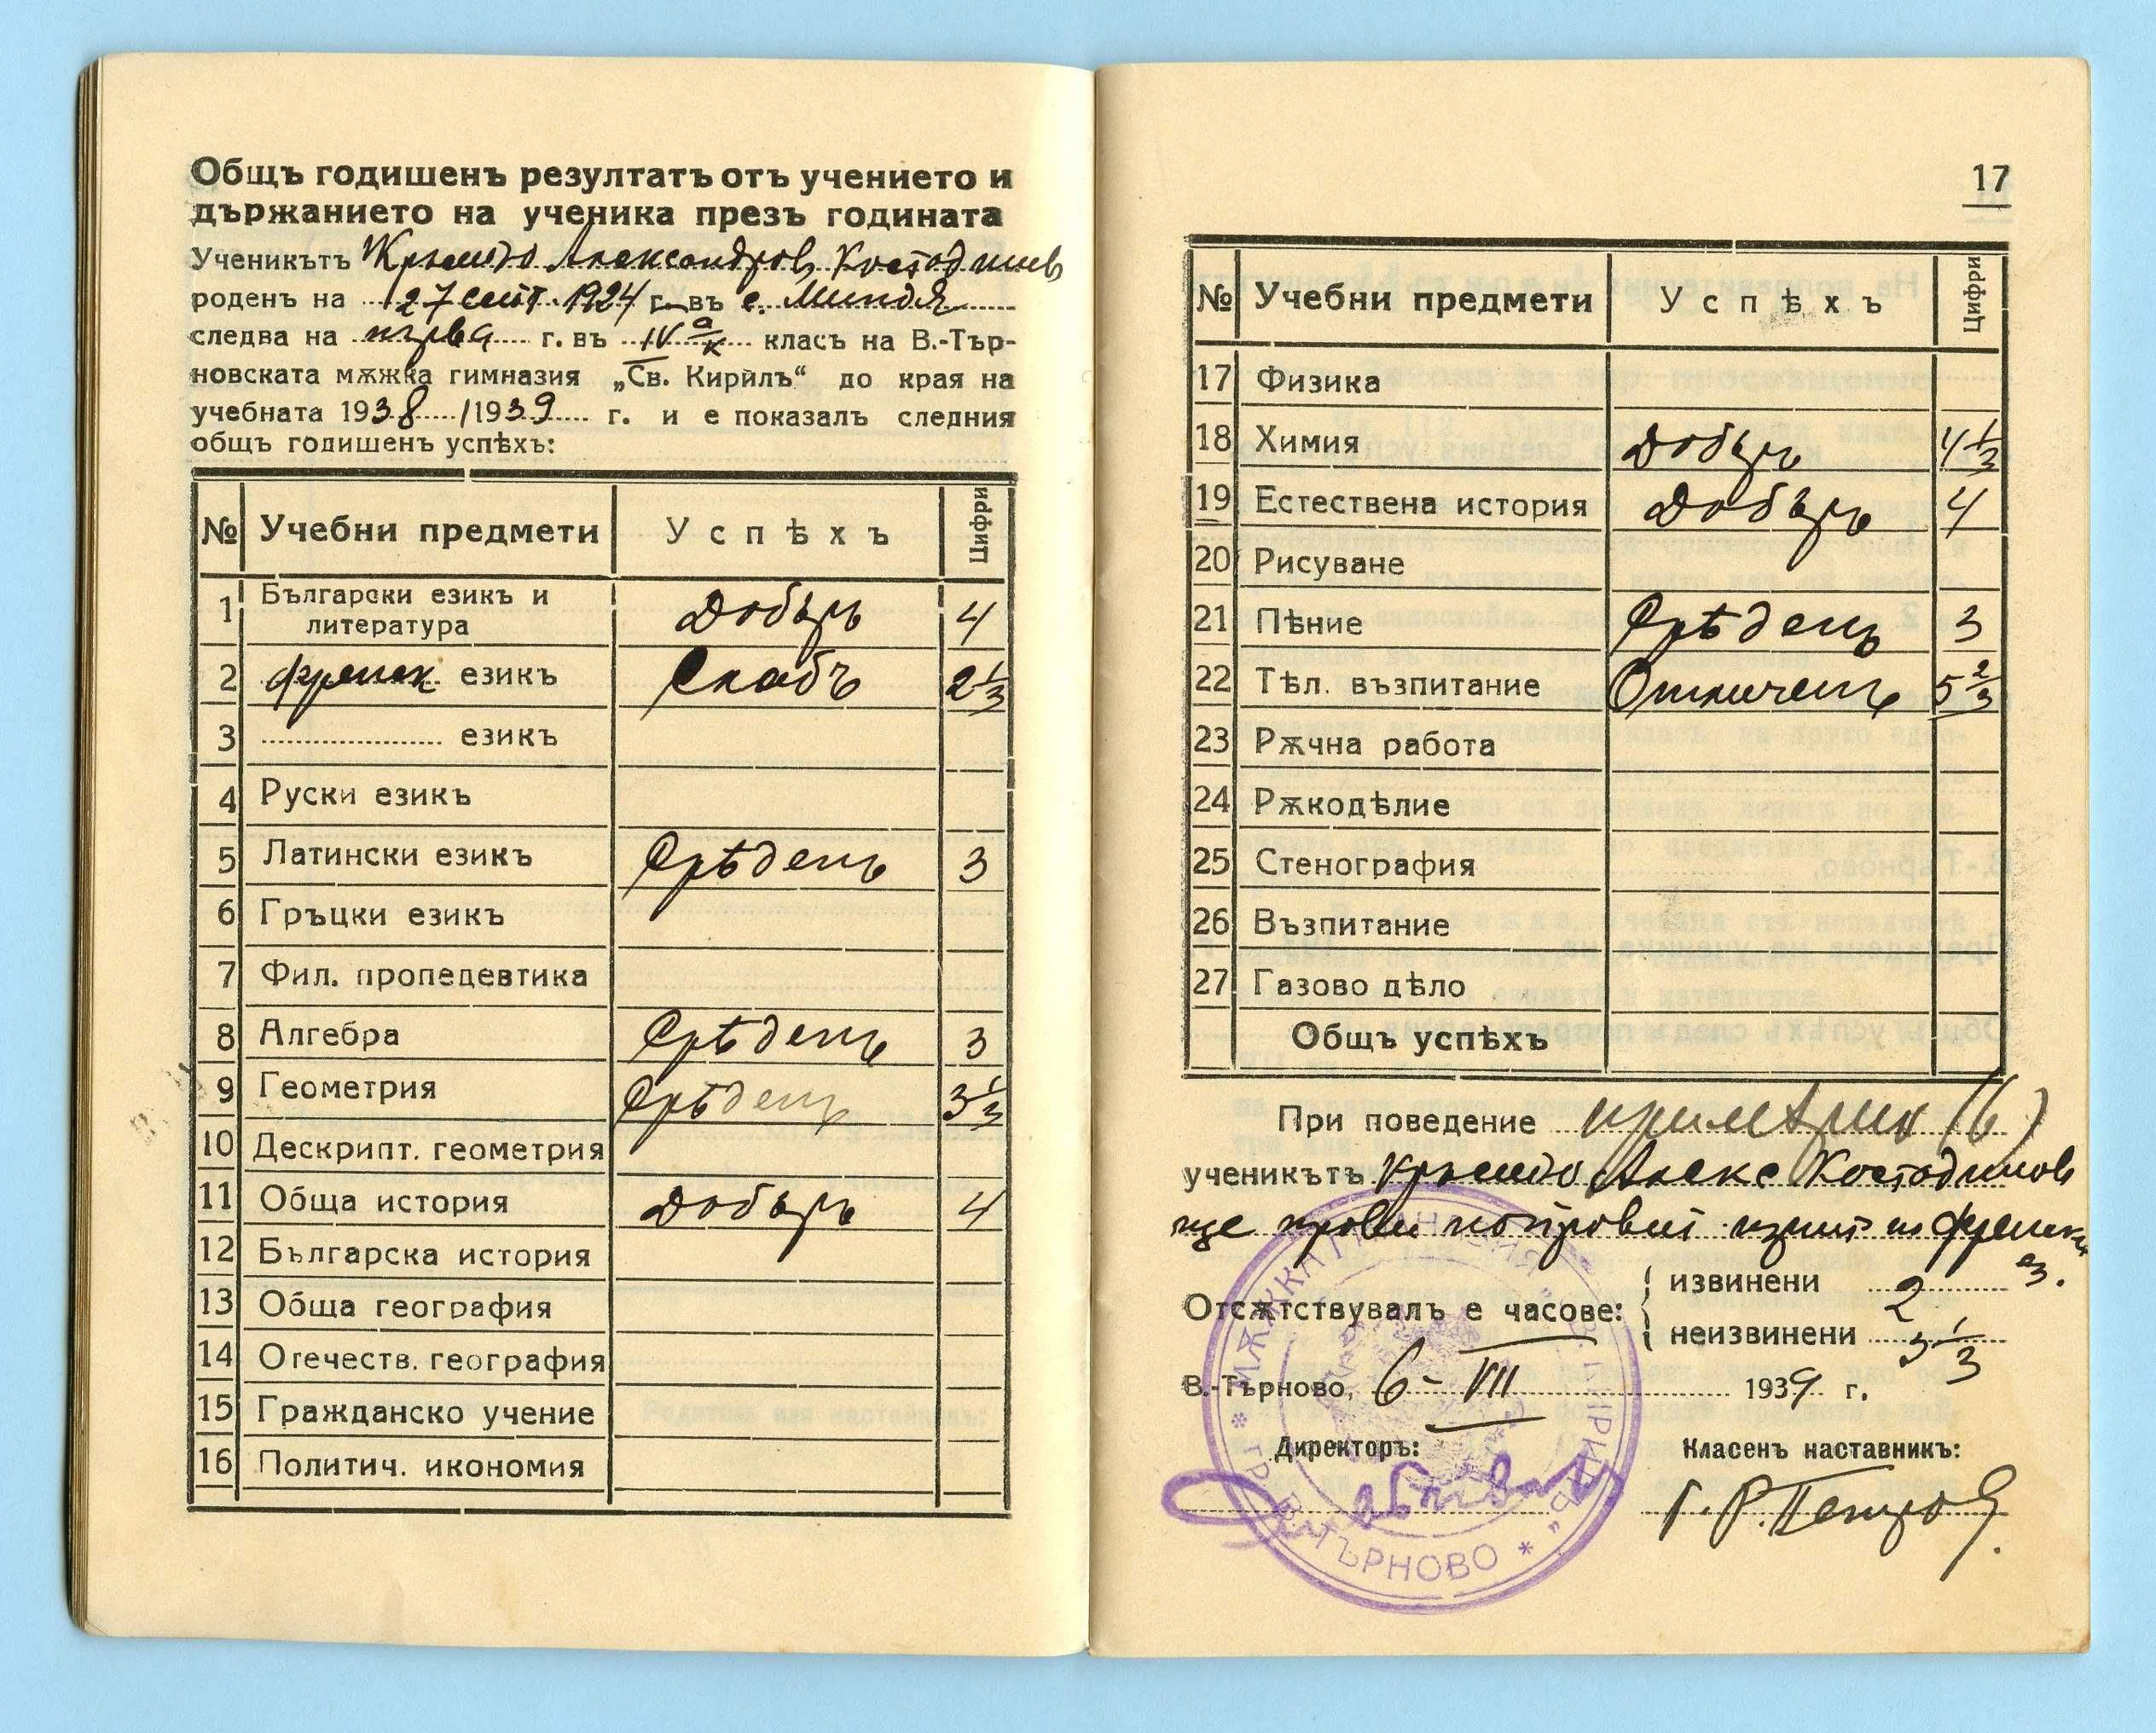 Общъ годишенъ резултатъ отъ учението и
държанието на ученика презъ годината
Ученикътъ Кръстю Александровъ Костадинов
роденъ на 27 септ. 1924 г. въ с. Миндя
следва на първа г. въ IV а/к класъ на В.-Тър-
новската мѫжка гимназия „Св. Кирилъ“ до края на
учебната 1938/1939 г. и е показалъ следния
общъ годишенъ успѣхъ:
№ Учебни предмети Успѣхъ Цифри
1 Български езикъ и литература Добъръ 4
2 френск езикъ Слабъ 2 1/3
3 езикъ
4 Руски езикъ
5 Латински езикъ Срѣденъ 3
6 Гръцки езикъ
7 Фил. пропедевтика
8 Алгебра Срѣденъ 3
9 Геометрия Срѣденъ 3 1/3
10 Дескрипт. геометрия
11 Обща история Добъръ 4
12 Българска история
13 Обща география
14 Отечеств. география
15 Гражданско учение
16 Политич. икономия
17
№ Учебни предмети Успѣхъ Цифри
17 Физика
18 Химия Добъръ 4 1/3
19 Естествена история Добъръ 4
20 Рисуване
21 Пѣние Срѣденъ 3
22 Тѣл. възпитание Отличенъ 5 2/3
23 Рѫчна работа
24 Рѫкодѣлие
25 Стенография
26 Възпитание
27 Газово дѣло
Общъ успѣхъ
При поведение примѣрно (6)
ученикътъ Кръстю Алекс Костадинов
ще държи поправит. изпит по френски
ез.
Отсѫтствувалъ е часове: извинени 2
неизвинени 3 1/3
В.-Търново, 6-VII 1939 г.
Директоръ: Класенъ наставникъ:
Г. Р. Петров
МѪЖКА ГИМНАЗИЯ „СВ. КИРИЛЪ“ * ГР. В. ТЪРНОВО *